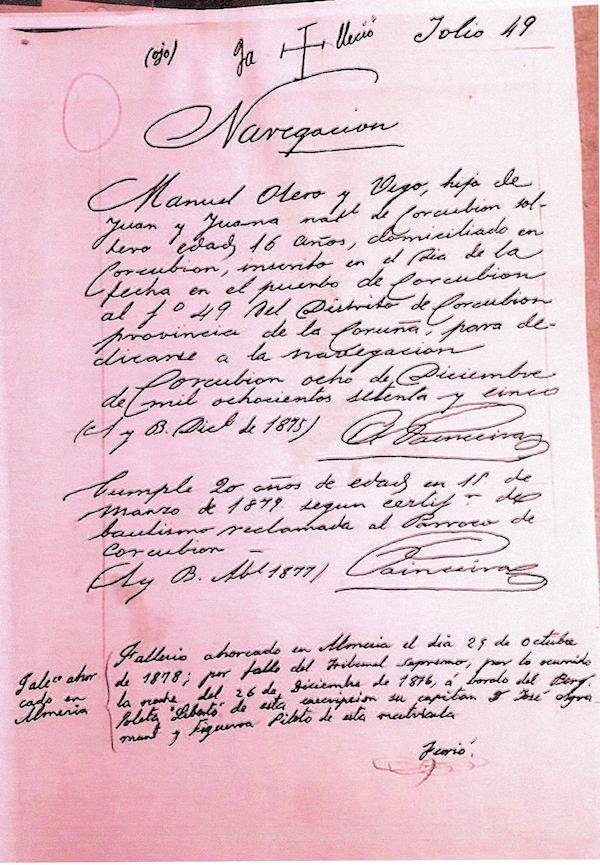 (ojo) Fa lleció Folio 49
Navegacion
Manuel Otero y Vigo, hijo de
Juan y Juana natl de Corcubion sol-
tero edad 16 años, domiciliado en
Corcubion, inscrito en el Dia de la
fecha en el puerto de Corcubion
al fº 49 del Distrito de Corcubion
provincia de la Coruña, para de-
dicarse a la navegacion
Corcubion ocho de Diciembre
de mil ochocientos setenta y cinco
y B. Dice de 1875)
Cumple 20 años de edad en 1º de
Marzo de 1879 segun certifn de
bautismo reclamada al Parroco de
Corcubion —
(A y B. Abl 1877)
Fallecio ahorcado en Almeria el dia 29 de octubre
de 1878; por fallo del Tribunal Supremo, por lo ocurrido
la noche del 26 de Diciembre de 1876, á bordo del Berg.
Goleta "Liberto" de esta inscripcion su capitan D José
y Figueroa Piloto de esta matricula
Falecº ahor
cado en
Almeria